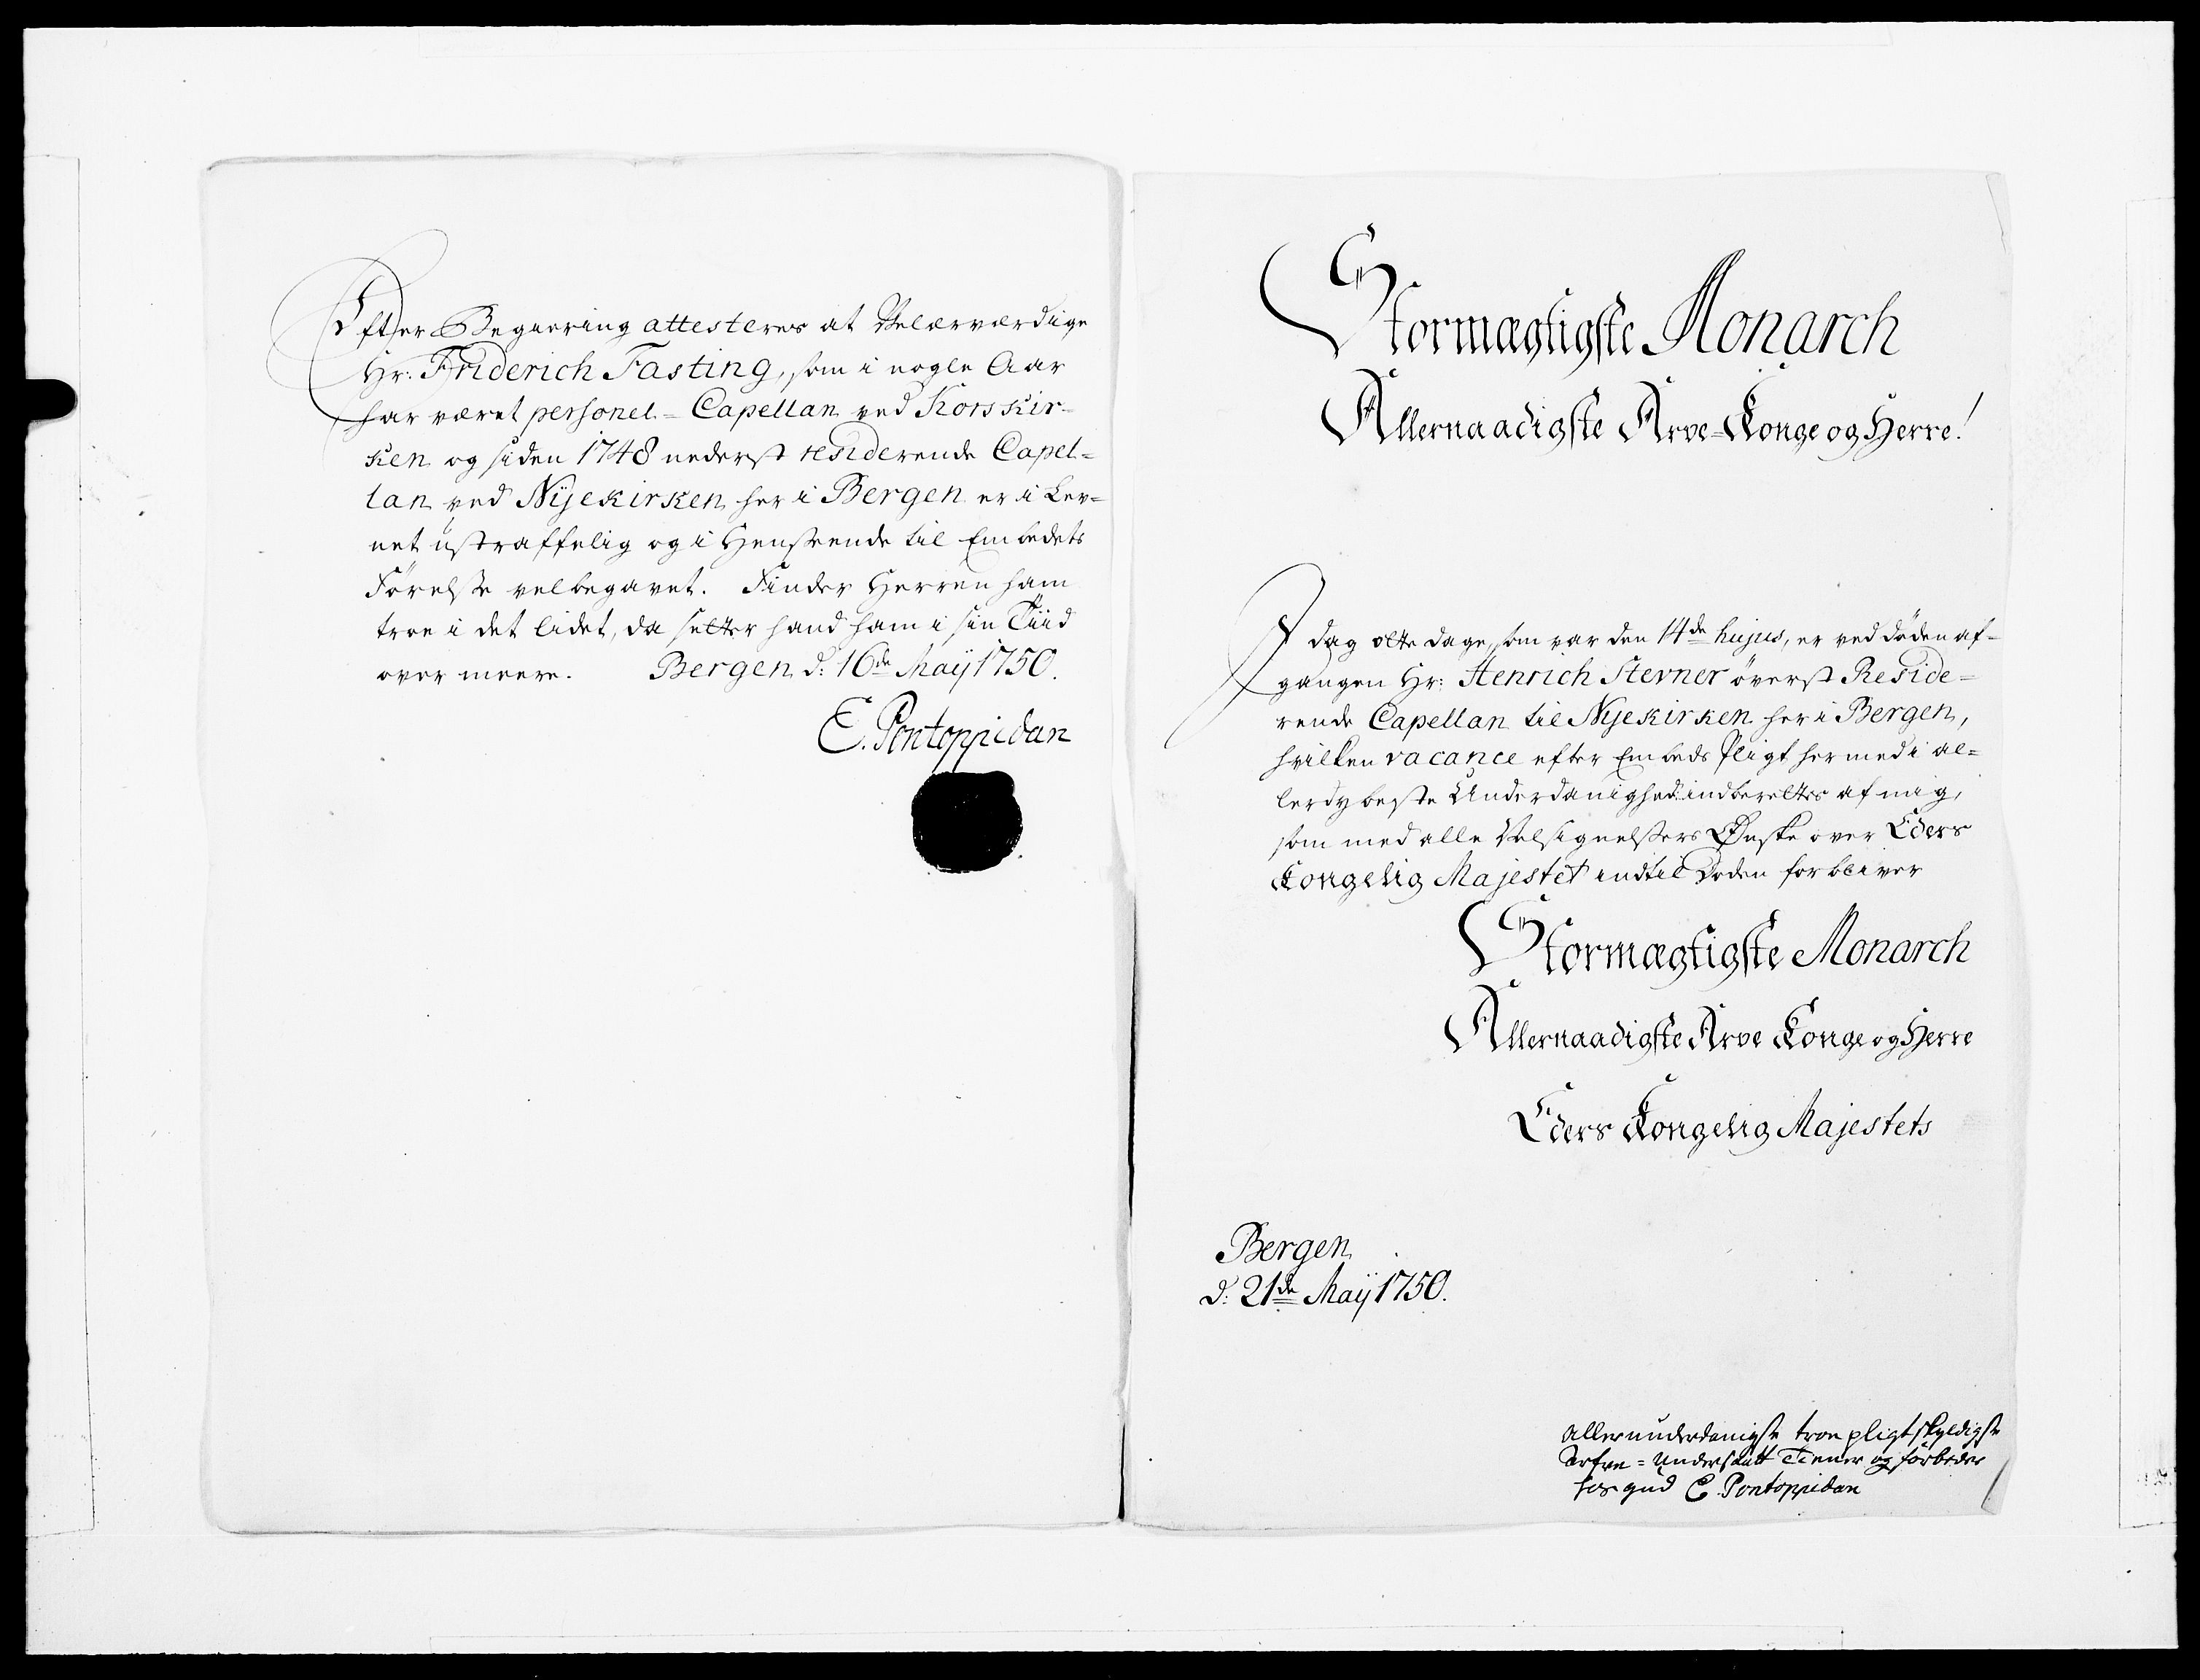 Efter Begiering attesteres at Velærværdige
Hr: Friderich Fasting, som i nogle Aar
har været personel=Capellan ved Korskir=
ken og siden 1748 nederst residerende Capel=
lan ved Nÿekirken her i Bergen er i Lev=
net ustraffelig og i Henseende til Embedets
Førelse velbegavet. Finder Herren ham
troe i det lidet, da setter hand ham i sin Tiid
over meere. Bergen d: 16de Maÿ 1750.
E. Pontoppidan
Stormægtigste Monarch
Allernaadigste Arve=Konge og Herre!
I dag otte dage, som var den 14de hujus, er ved døden af=
gangen Hr: Henrich Sterner øverst Reside=
rende Capellan til Nÿekirken her i Bergen,
hvilken vacance efter Embeds Pligt hermed i al=
lerdybeste Underdanighed indberettes af mig,
som med alle Velsignelsers Ønske over Eders
Kongelig Majestet indtil Døden forbliver
Stormægtigste Monarch
Allernaadigste Arve Konge og Herre
Eders Kongelig Majestets
Bergen
d: 21de Maÿ 1750.
allerunderdanigste troe pligtskyldigste
Arfve=Undersaatt Tiener og forbeder
hos gud E. Pontoppidan